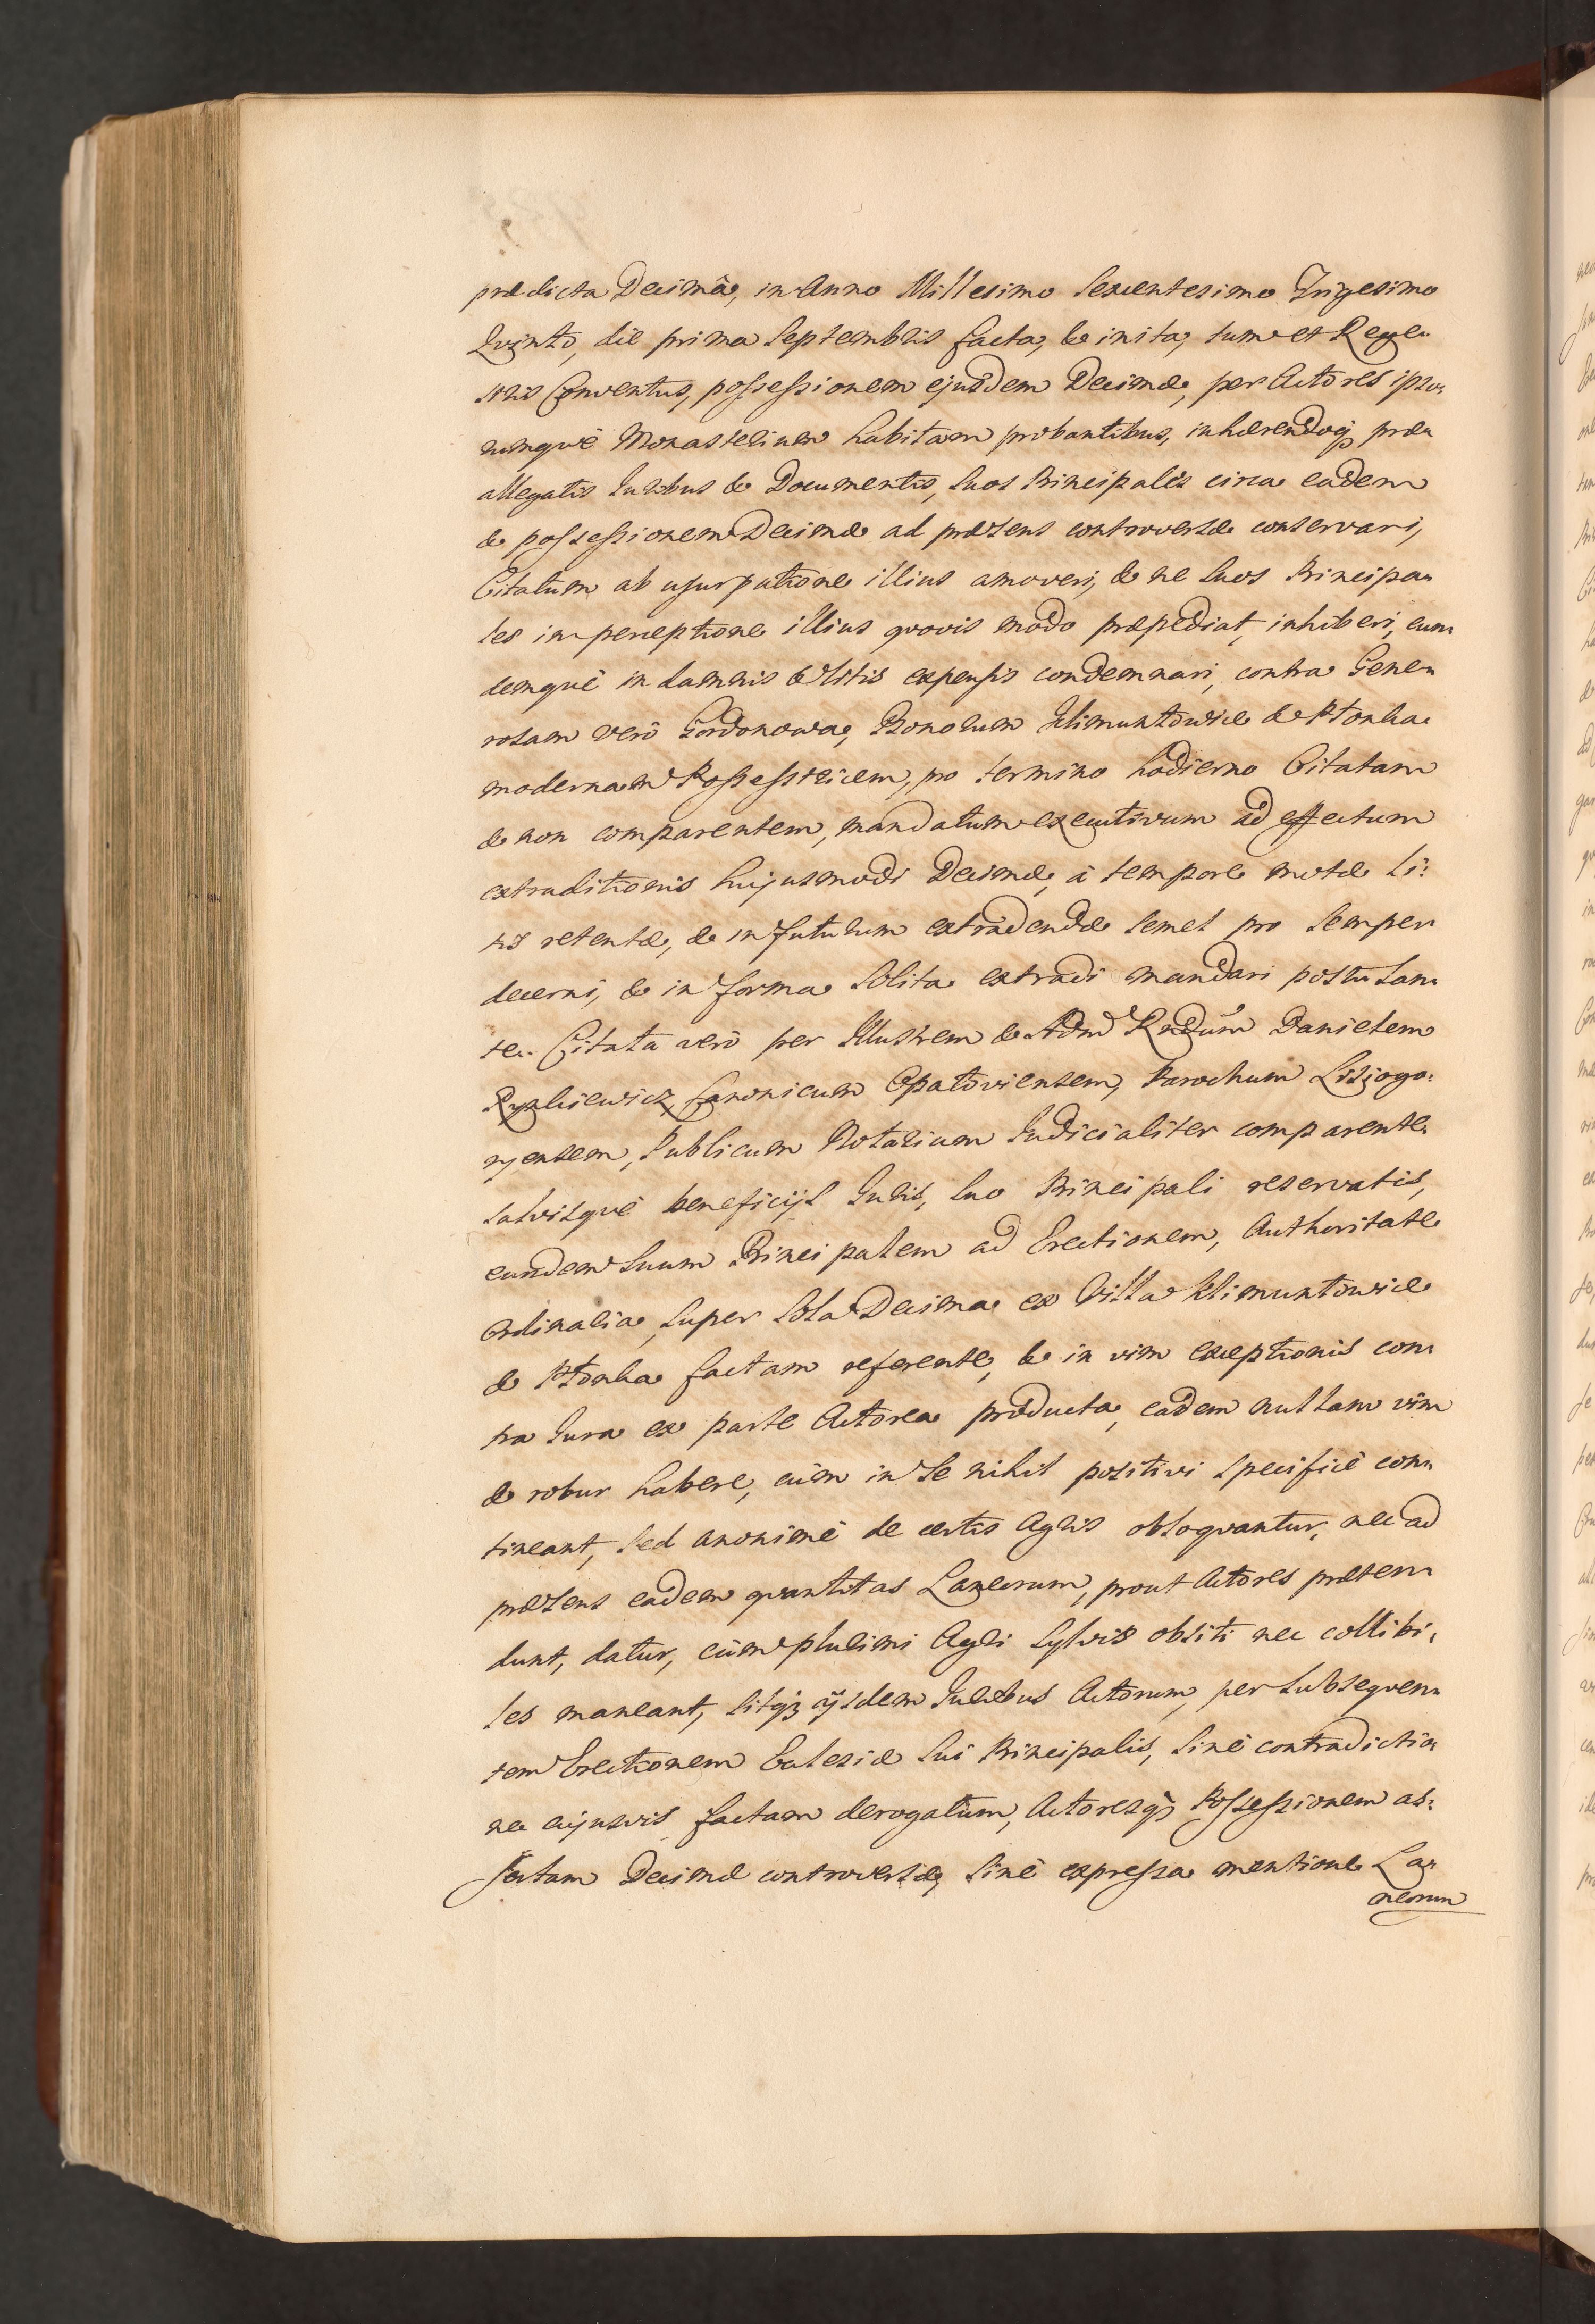 prædicta Decimâ, in Anno Millesimo Sexentesimo Trigesimo
Qvinto, die prima Septembris facta, & inita, tum et Rege„
stris Conventus, possessionem ejusdem Decimæ, per Actores ipso„
rumqvè Monasterium habitam probantibus, inhærendoq3 præ„
allegatis Juribus & Documentis, Suos Principales circa eadem
& possessionem Decimæ ad præsens controversæ conservari,
Citatum ab usurpatione illius amoveri, & ne Suos Principa„
les in perceptione illius qvovis modo præpediat, inhiberi, eun„
demqvè in damnis & litis expensis condemnari, contra Gene„
rosam verò Gordonowa, Bonorum Klimuntowice & Ptonka
modernam Possestricem, pro termino hodierno Citatam
& non comparentem, mandatum executivum ad effectum
extraditionis hujusmodi Decimæ, à tempore motæ Li:
tis retentæ, & in futurum extradendæ semel pro semper
decerni, & in forma Solita extradi mandari postulan„
te. Citata verò per Illustrem & Admd Rndum Danielem
Rynkiewicz, Canonicum Opatoviensem, Parochum Lisiogo:
ryensem, Publicum Notarium Judicialiter comparente
salvisqvè beneficijs Juris, Suo Principali reservatis,
eundem Suum Principalem ad Erectionem, Authoritate
Ordinaria, Super Sola Decima ex Villa Klimuntowice
& Ptonka factam referente, & in vim exceptionis con„
tra Jura ex parte Actorea producta, eadem nullam vim
& robur habere, cùm in se nihil positivi specificè con„
tineant, Sed anonimè de certis Agris obloqvantur, nec ad
præsens eadem qvantitas Laneorum, prout Actores præten„
dunt, datur, cùm plurimi Agri Sylvis obsiti nec collibi„
les maneant, Sitq3 ijsdem Juribus Actorum, per Subseqven„
tem Erectionem Eclesiæ Sui Principalis, Sinè contradictio„
ne cujusvis factam derogatum, Actoresq3 Possessionem as:
sertam Decimæ controversæ, Sinè expressa mentione La„
neorum